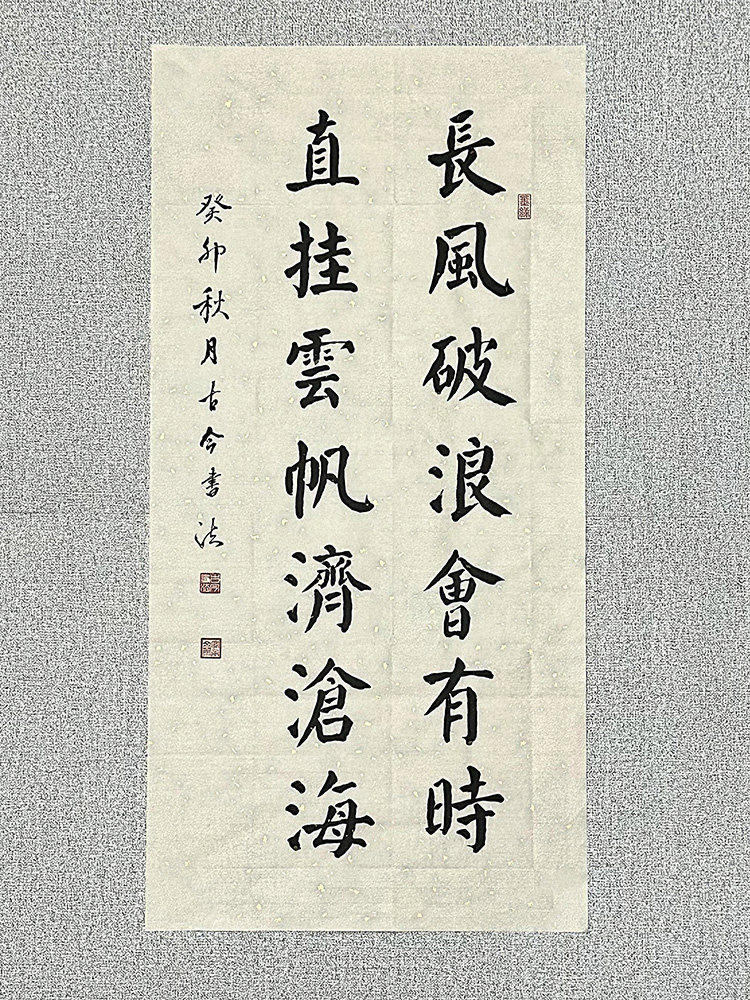 長風破浪會有時
直挂雲帆濟滄海
癸卯秋月古今書法